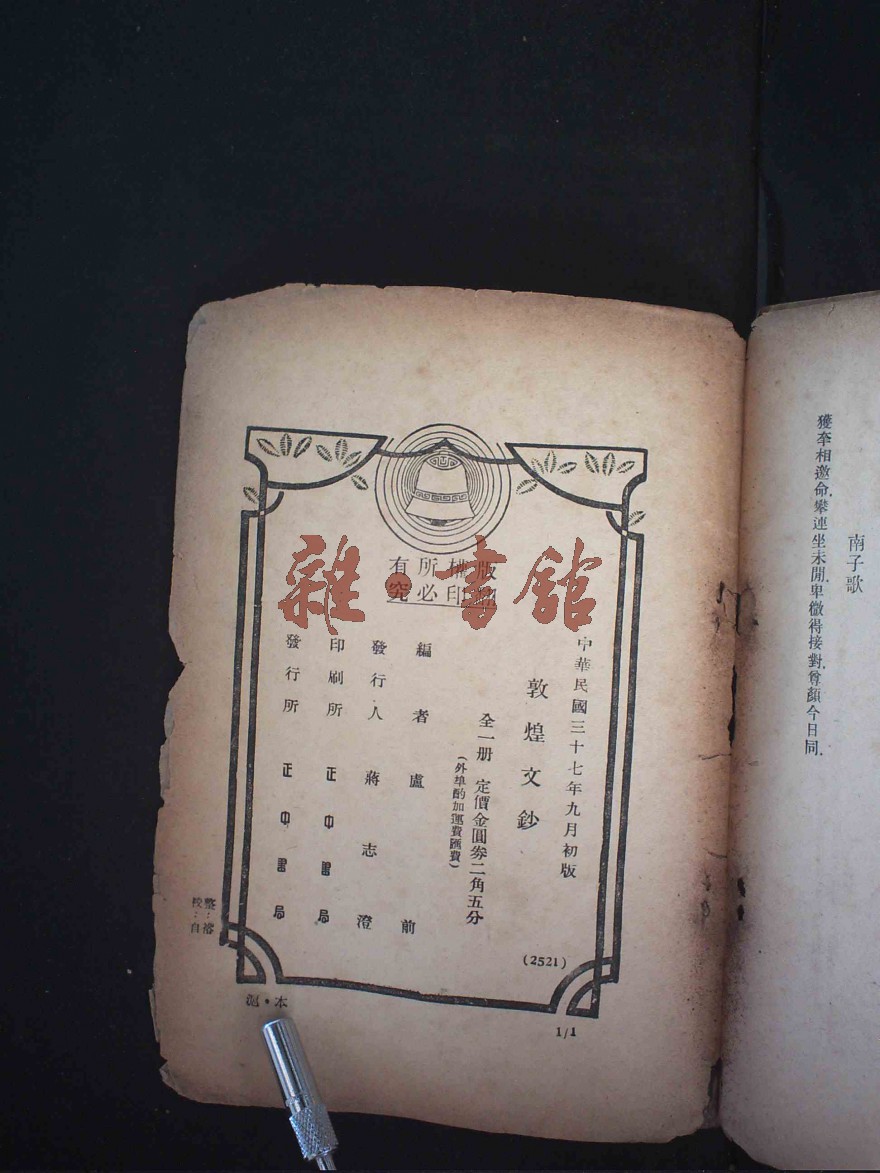 南子歌
獲牽相邀命.攀連坐未閒.卑微得接對.尊顏今日同.
版權所有
翻印必究
中華民國三十七年九月初版
敦煌文鈔
全一册 定價金圓券二角五分
(外埠酌加運費匯費)
編者 盧前
發行人 蔣志澄
印刷所 正中書局
發行所 正中書局
(2521)
校:自
滬•本
1/1
雜•書館